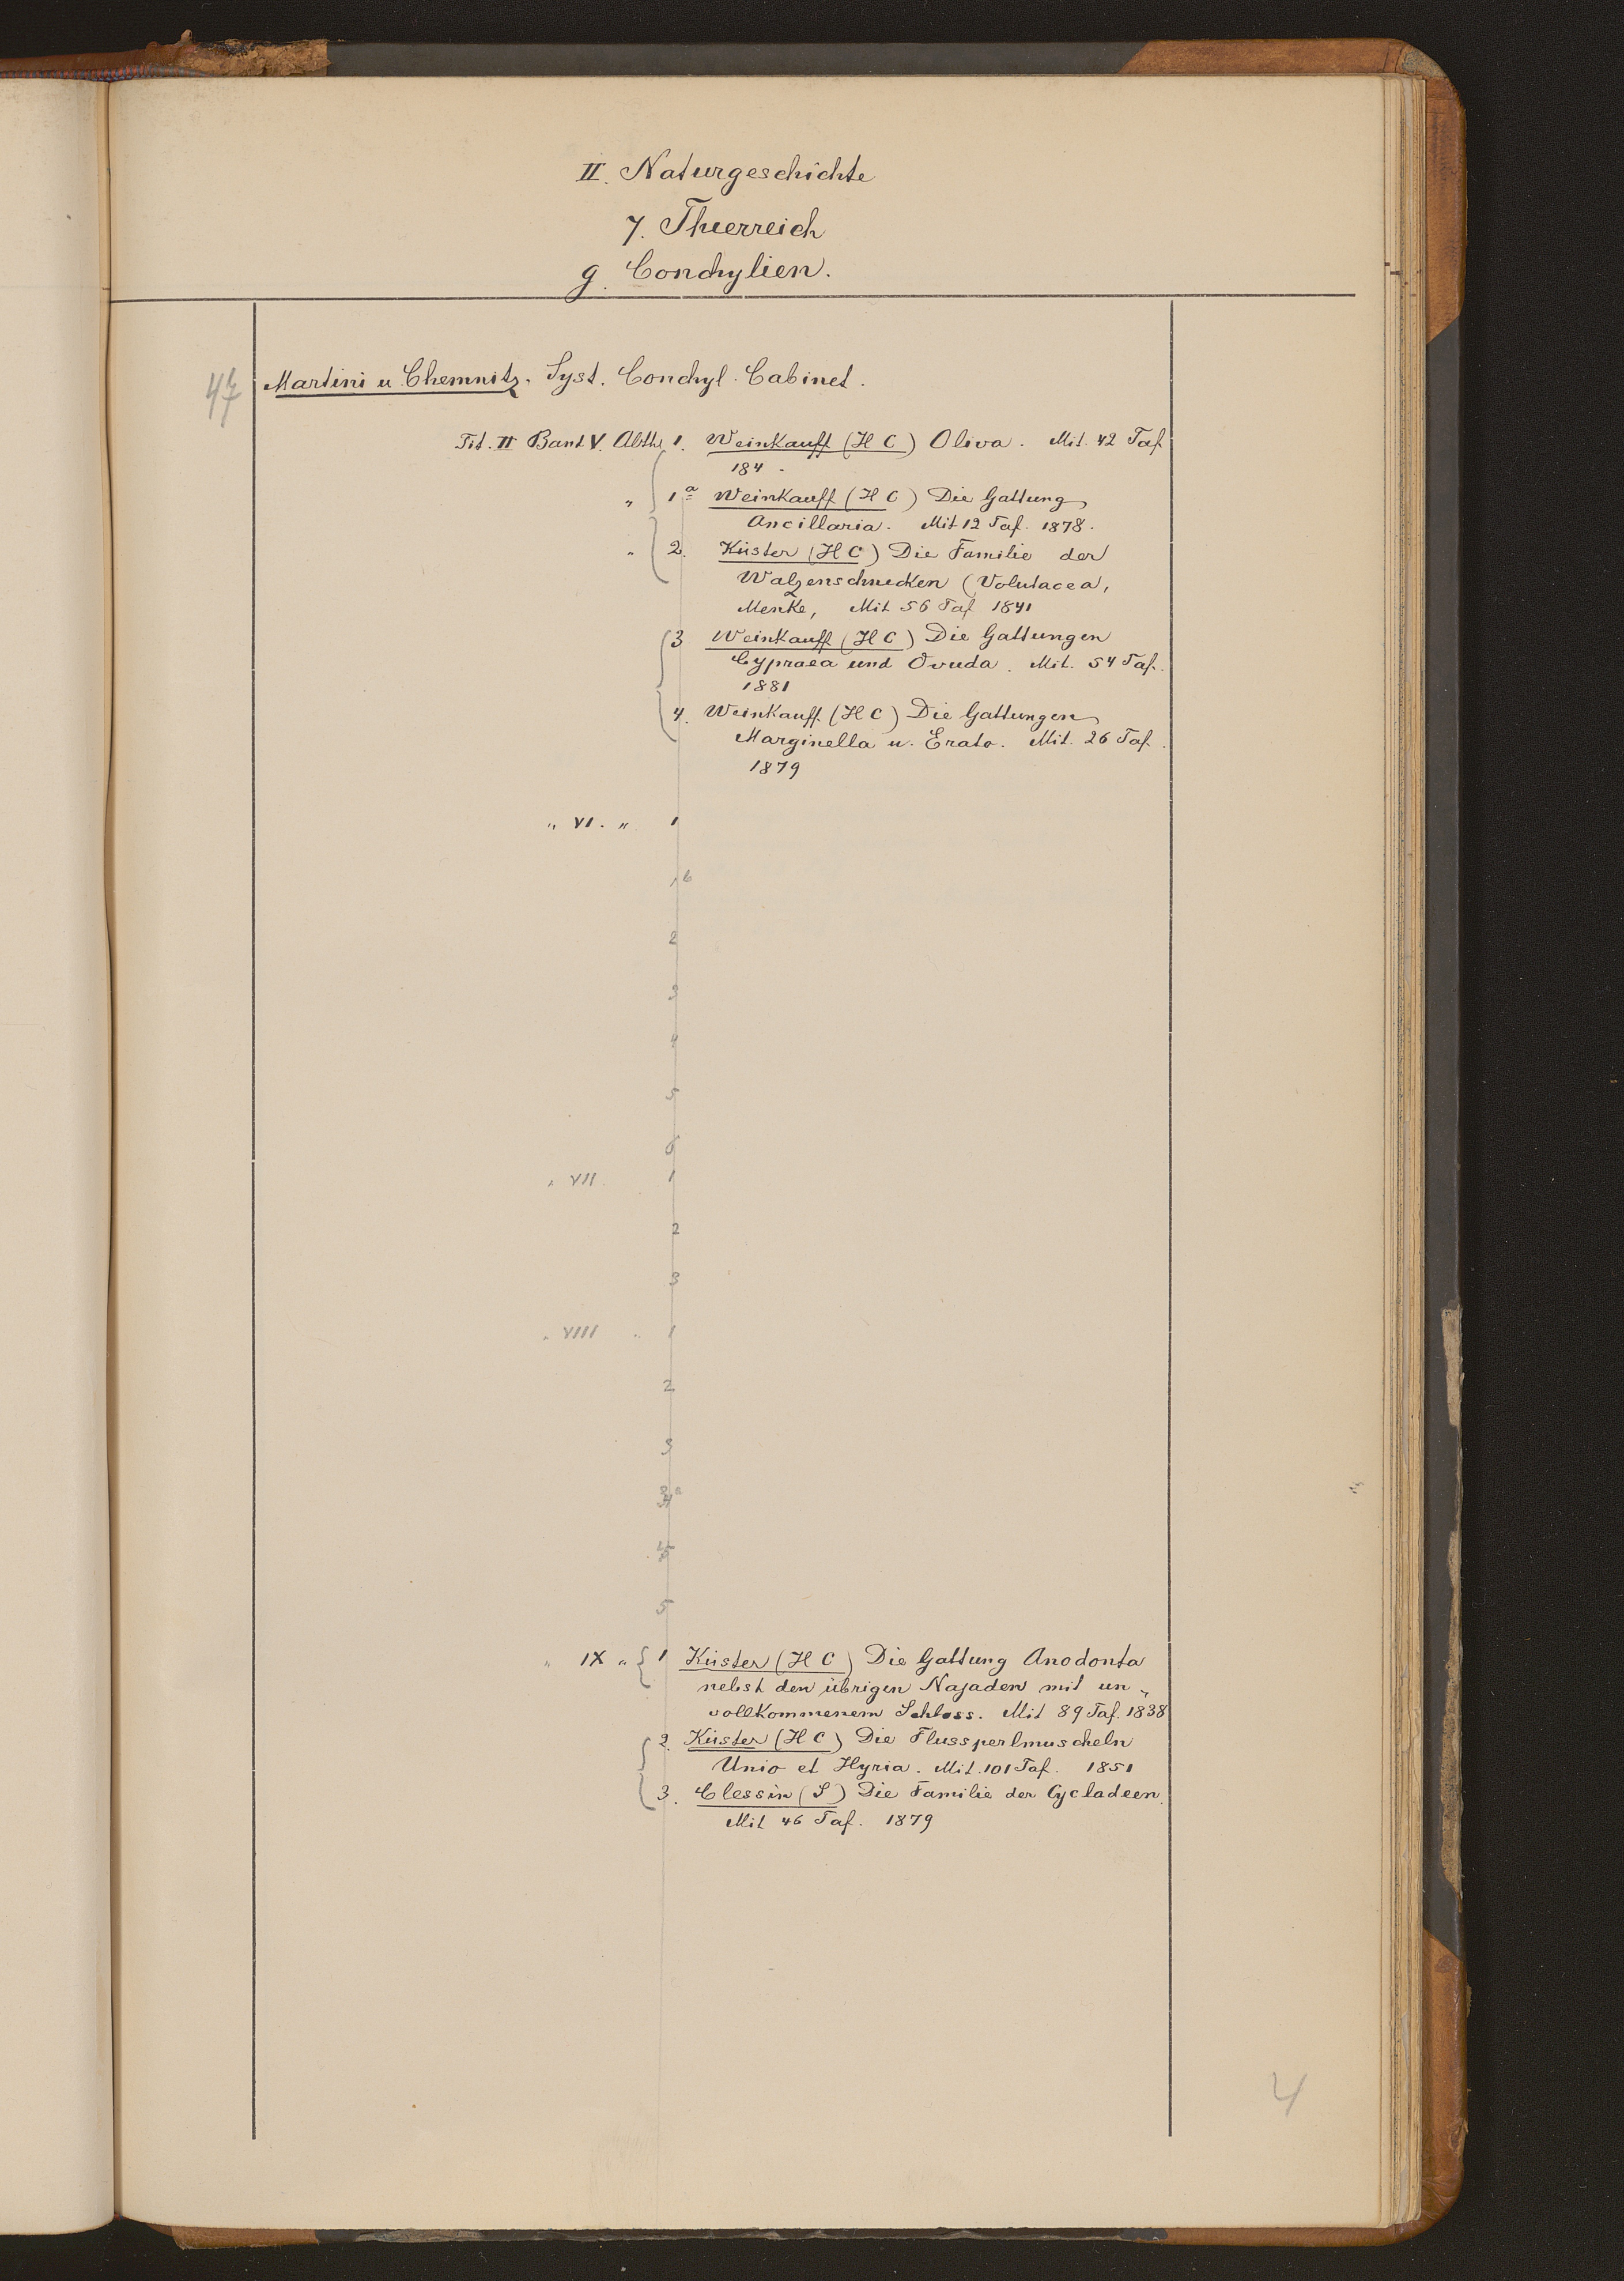 II. Naturgeschichte
7. Thierreich
g. Conchylien.
47 Martini u. Chemnitz. Syst. Conchyl. Cabinet.
Tit. II Band V. Abthe 1. Weinkauff (H C) Oliva. Mit. 42 Taf
184 .
" 1a Weinkauff (H C) Die Gattung
Ancillaria. Mit 12 Taf. 1878.
" 2. Küster (H C) Die Familie der
Walzenschnecken (Volutacea,
Menke, Mit 56 Taf 1841
3 Weinkauff (H C) Die Gattungen
Cypraea und Ovuda. Mit. 54 Taf.
1881
4. Weinkauff. (H C) Die Gattungen
Marginella u. Erato. Mit. 26 Taf.
1879
" VI. " 1
1b
2
3
4
5
6
" VII. 1
2
3
" VIII " 1
2
3
5
" IX " 1 Küster (H C) Die Gattung Anodonta
nebst den übrigen Najaden mit un-
vollkommenem Schloss. Mit 89 Taf. 1838
2. Küster (H C) Die Flussperlmuscheln
Unio et Hyria. Mit. 101 Taf. 1851
3. Clessin (S) Die Familie der Cycladeen.
Mit 46 Taf. 1879
4